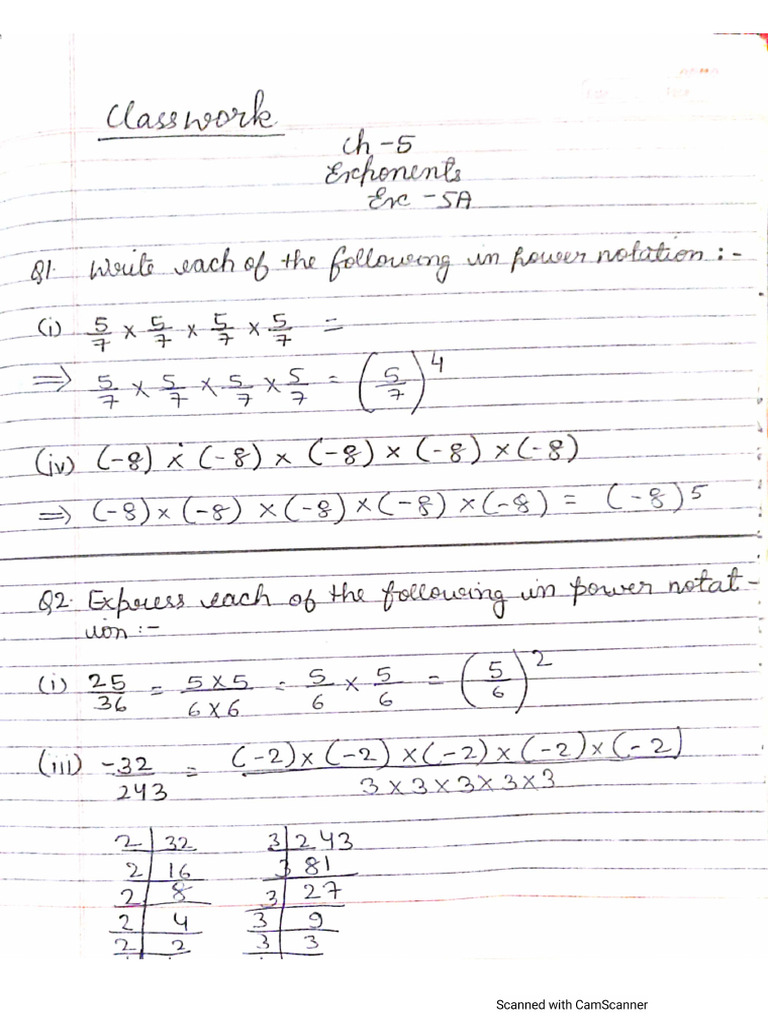 Classwork
Ch-5
Exponents
Exc -5A
Q1. Write each of the following in power notation :-
(i) 5/7 × 5/7 × 5/7 × 5/7 =
⇒ 5/7 × 5/7 × 5/7 × 5/7 = (5/7)^4
(iv) (-8) × (-8) × (-8) × (-8) × (-8)
⇒ (-8) × (-8) × (-8) × (-8) × (-8) = (-8)^5
Q2. Express each of the following in power notat-
ion :-
(i) 25/36 = 5×5/6×6 = 5/6 × 5/6 = (5/6)^2
(iii) -32/243 = (-2) × (-2) × (-2) × (-2) × (-2) / 3×3×3×3×3
2 | 32 3 | 243
2 | 16 3 | 81
2 | 8 3 | 27
2 | 4 3 | 9
2 | 2 3 | 3
Scanned with CamScanner